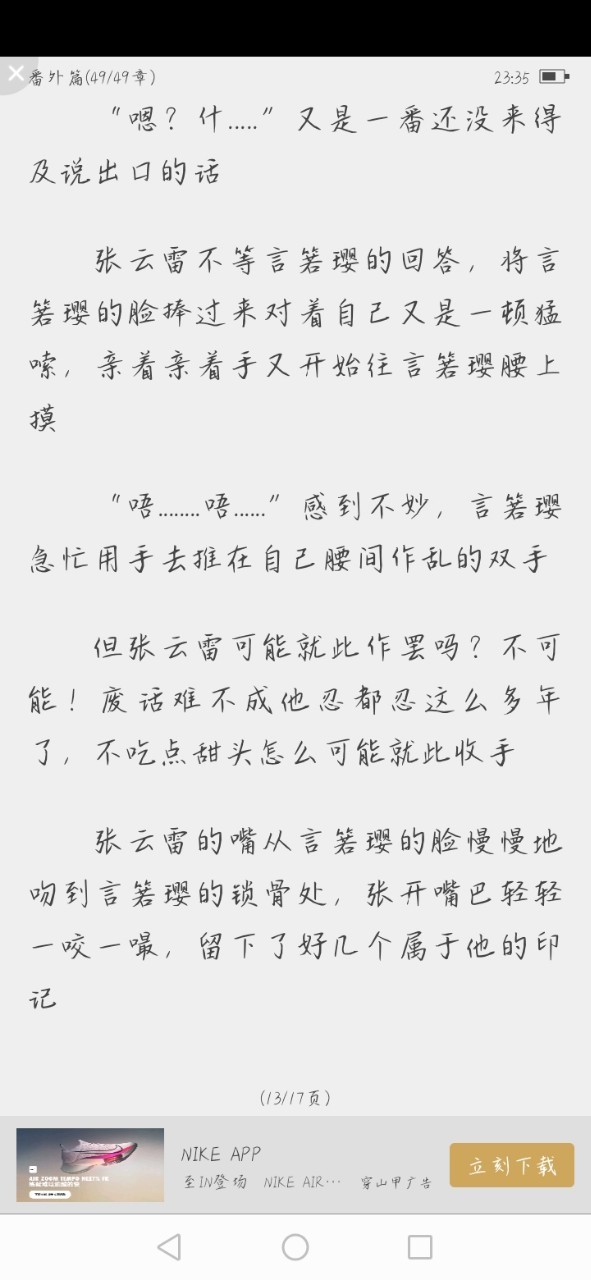 番外篇(49/49章)
23:35
“嗯？什.....”又是一番还没来得
及说出口的话
张云雷不等言箬璎的回答，将言
箬璎的脸捧过来对着自己又是一顿猛
嗦，亲着亲着手又开始往言箬璎腰上
摸
“唔........唔......”感到不妙，言箬璎
急忙用手去推在自己腰间作乱的双手
但张云雷可能就此作罢吗？不可
能！废话难不成他忍都忍这么多年
了，不吃点甜头怎么可能就此收手
张云雷的嘴从言箬璎的脸慢慢地
吻到言箬璎的锁骨处，张开嘴巴轻轻
一咬一嘬，留下了好几个属于他的印
记
(13/17页)
NIKE APP
至IN登场 NIKE AIR… 穿山甲广告
立刻下载